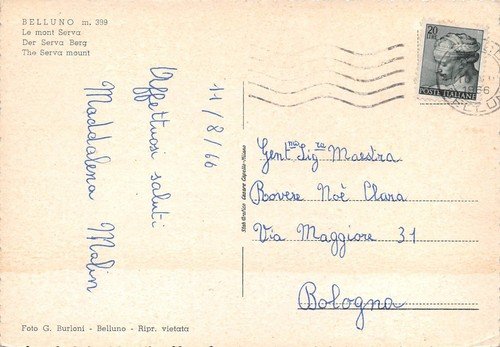 BELLUNO m. 389
Le mont Serva
Der Serva Berg
The Serva mount
11/8/66
Affettuosi saluti
Maddalena Malin
Stab. Grafico Cesare Capello - Milano
20
POSTE ITALIANE
Gent.ma Sig.ra Maestra
Rovere Noè Clara
Via Maggiore 31
Bologna
Foto G. Burloni - Belluno - Ripr. vietata